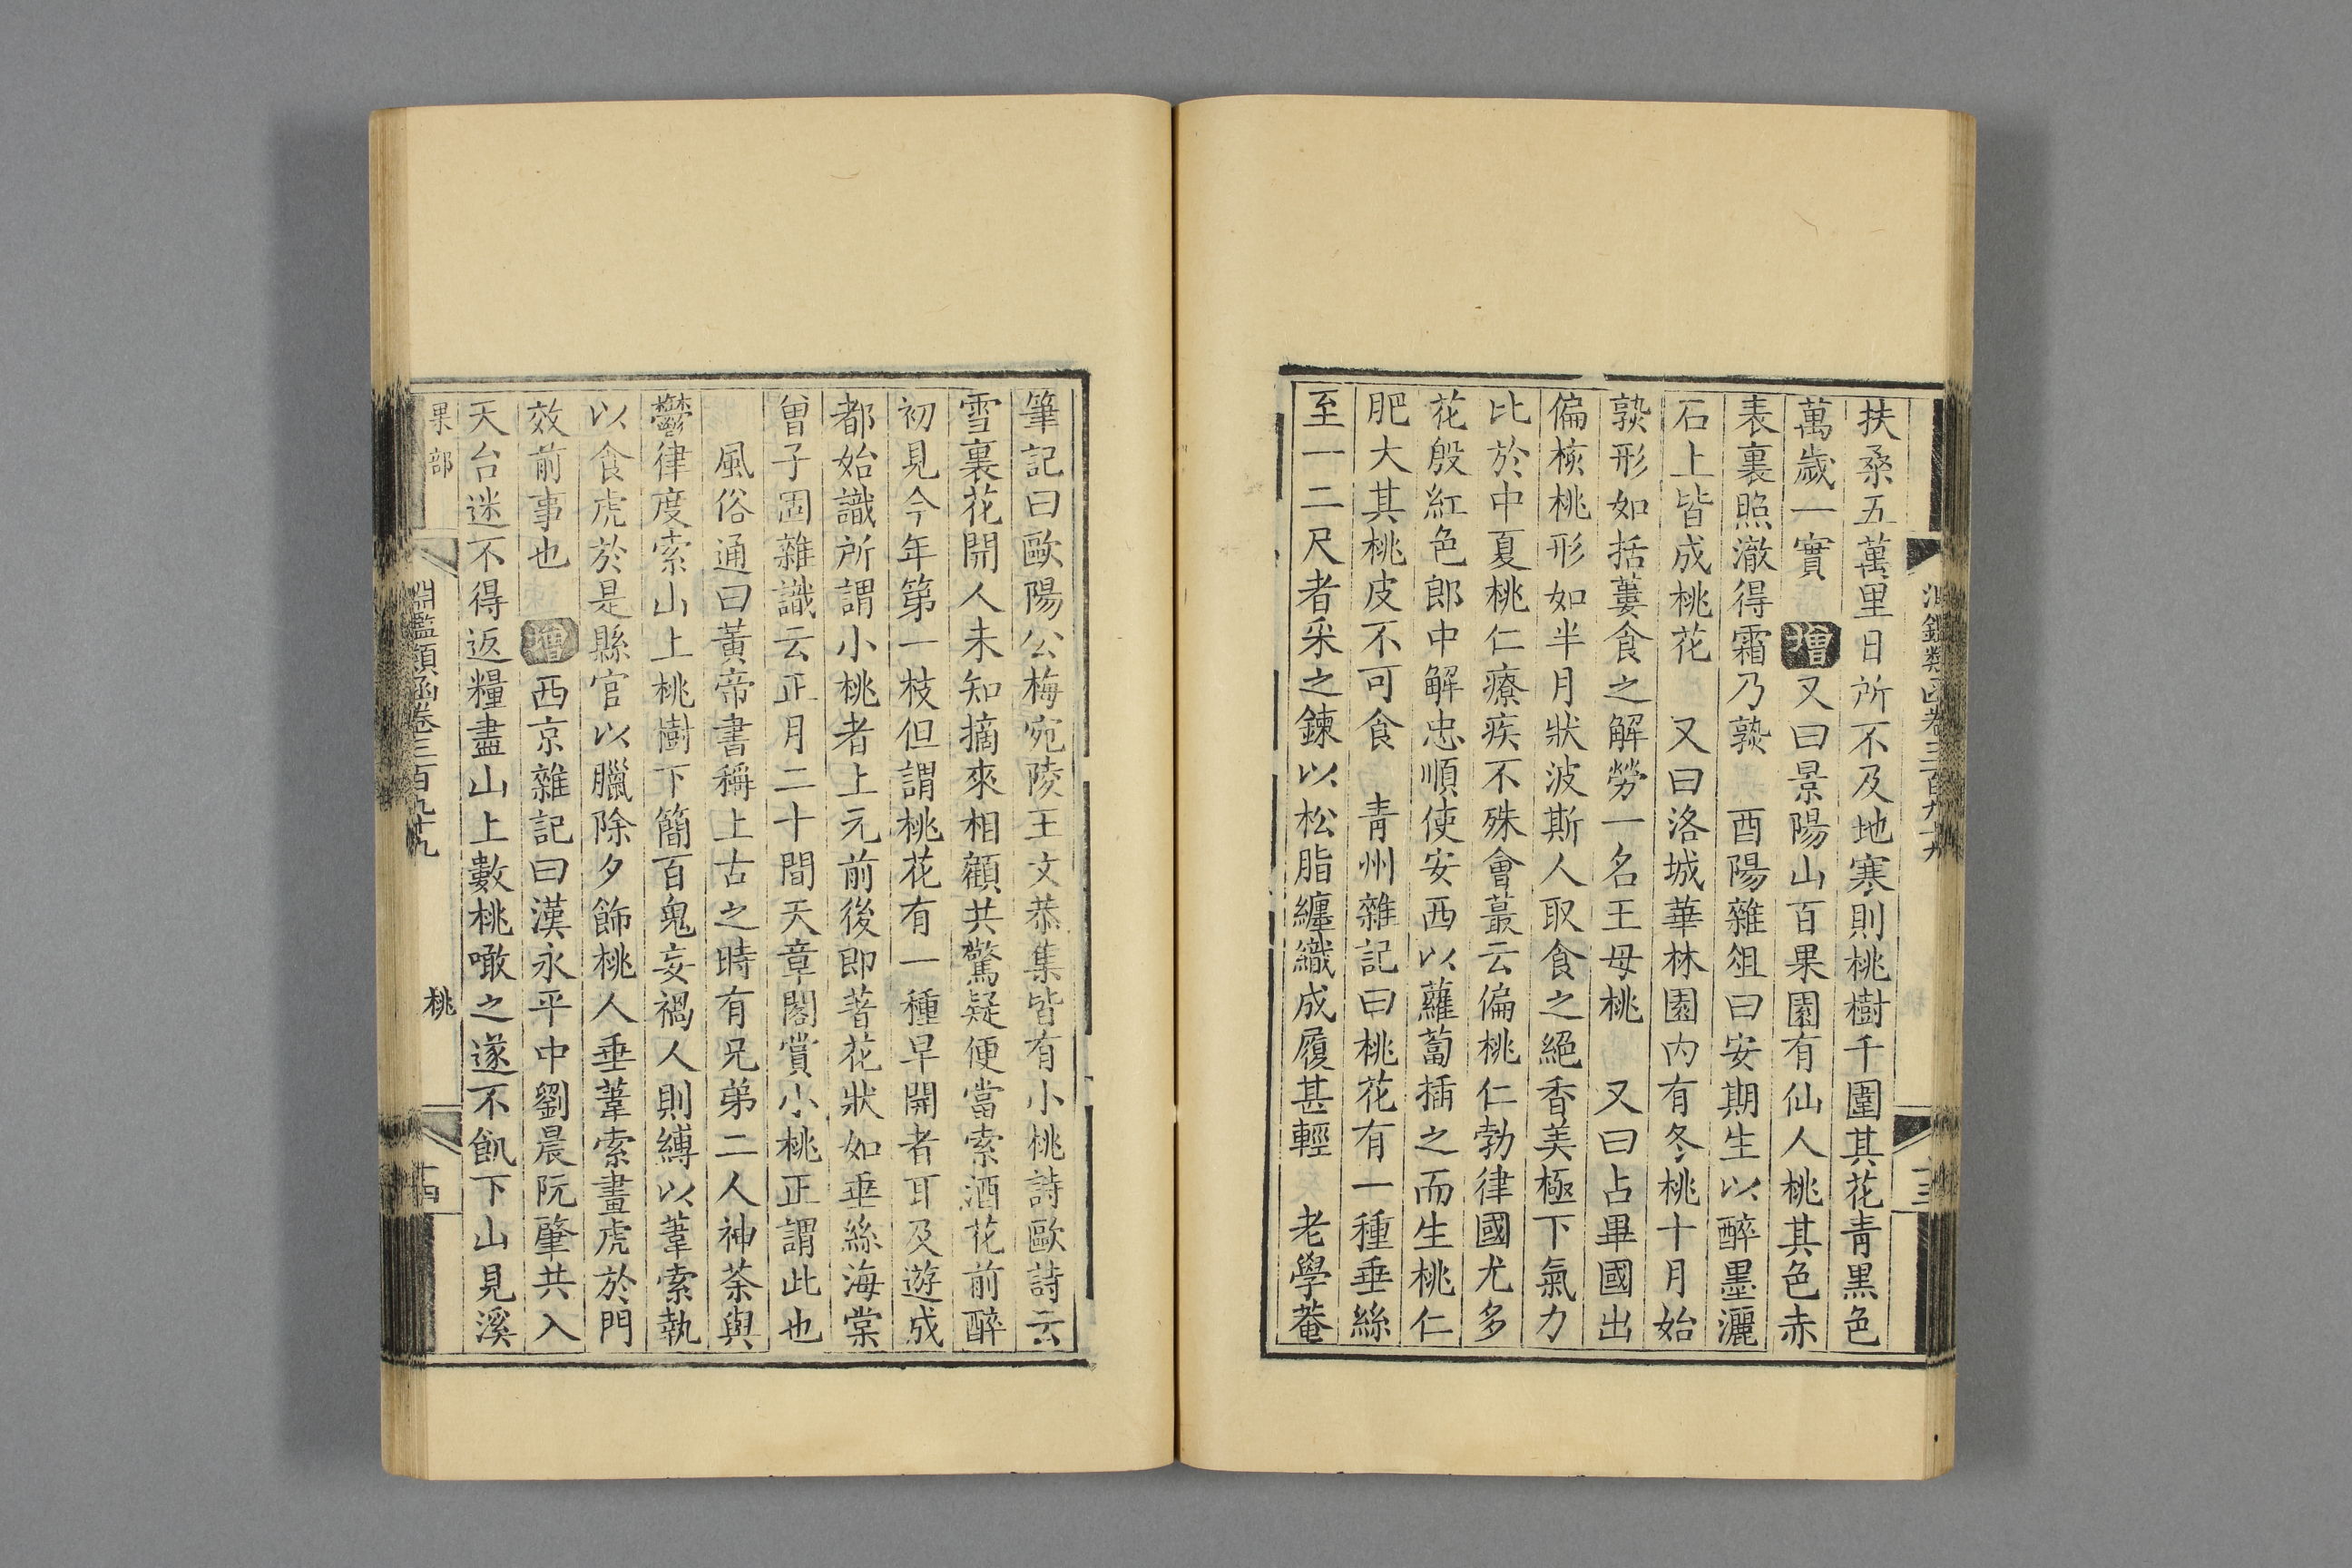 扶桑五萬里日所不及地寒則桃樹千圍其花靑黑色
萬歲一實 增又曰景陽山百果園有仙人桃其色赤
表裏照澈得霜乃孰 酉陽雜俎曰安期生以醉墨灑
石上皆成桃花 又曰洛城華林園內有冬桃十月始
孰形如括蔞食之解勞一名王母桃 又曰占畢國出
偏核桃形如半月狀波斯人取食之絕香美極下氣力
比於中夏桃仁療疾不殊會蕞云偏桃仁勃律國尤多
花殷紅色郎中解忠順使安西以蘿蔔插之而生桃仁
肥大其桃皮不可食 靑州雜記曰桃花有一種垂絲
至一二尺者采之鍊以松脂纏織成履甚輕 老學菴
筆記曰歐陽公梅宛陵王文恭集皆有小桃詩歐詩云
雪裏花開人未知摘來相顧共驚疑便當索酒花前醉
初見今年第一枝但謂桃花有一種早開者耳及遊成
都始識所謂小桃者上元前後即著花狀如垂絲海棠
曾子固雜識云正月二十間天章閣賞小桃正謂此也
風俗通曰黃帝書稱上古之時有兄弟二人神荼與
鬱律度索山上桃樹下簡百鬼妄禍人則縛以葦索執
以食虎於是縣官以臘除夕飾桃人垂葦索畫虎於門
效前事也 增西京雜記曰漢永平中劉晨阮肇共入
天台迷不得返糧盡山上數桃噉之遂不飢下山見溪
果部 淵鑑類函卷三百九十九 桃 十四